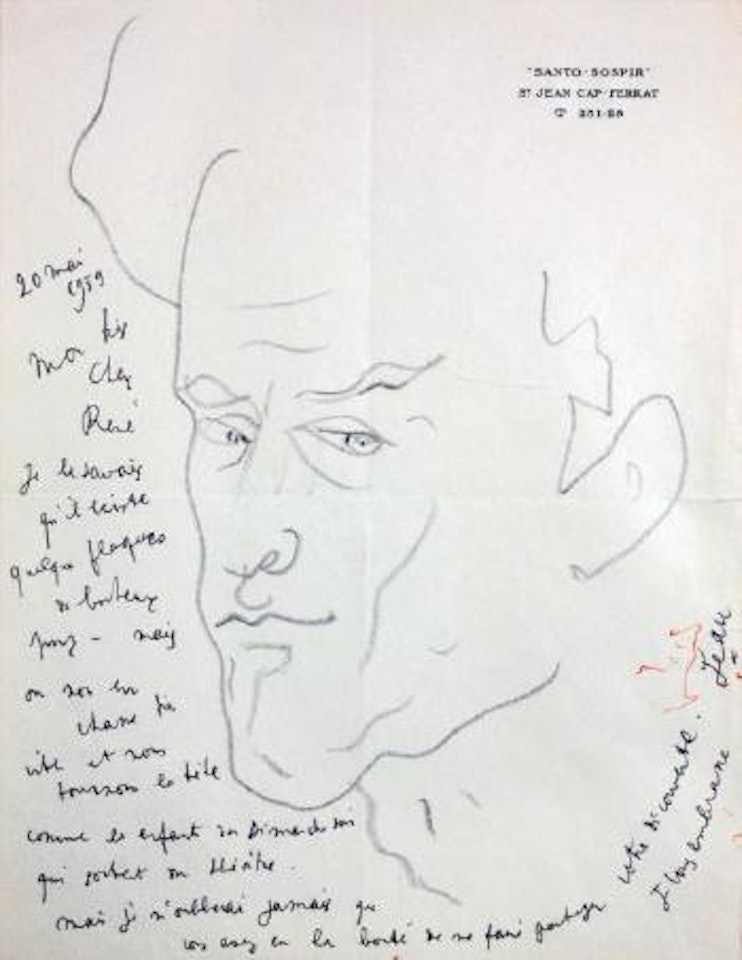 "SANTO-SOSPIR"
ST JEAN CAP-FERRAT
251-28
20 mai
1959
Mon très
cher
René
Je le savais
qu'il existe
quelques flaques
de
pour - mais
on nous en
chasse
vite et nous
tournons la tête
comme les enfants du Dimanche soir
qui sortent du théâtre.
mais je n'oublierai jamais que
vous avez eu la bonté de me faire partager
votre découverte.
Je vous embrasse
Jean